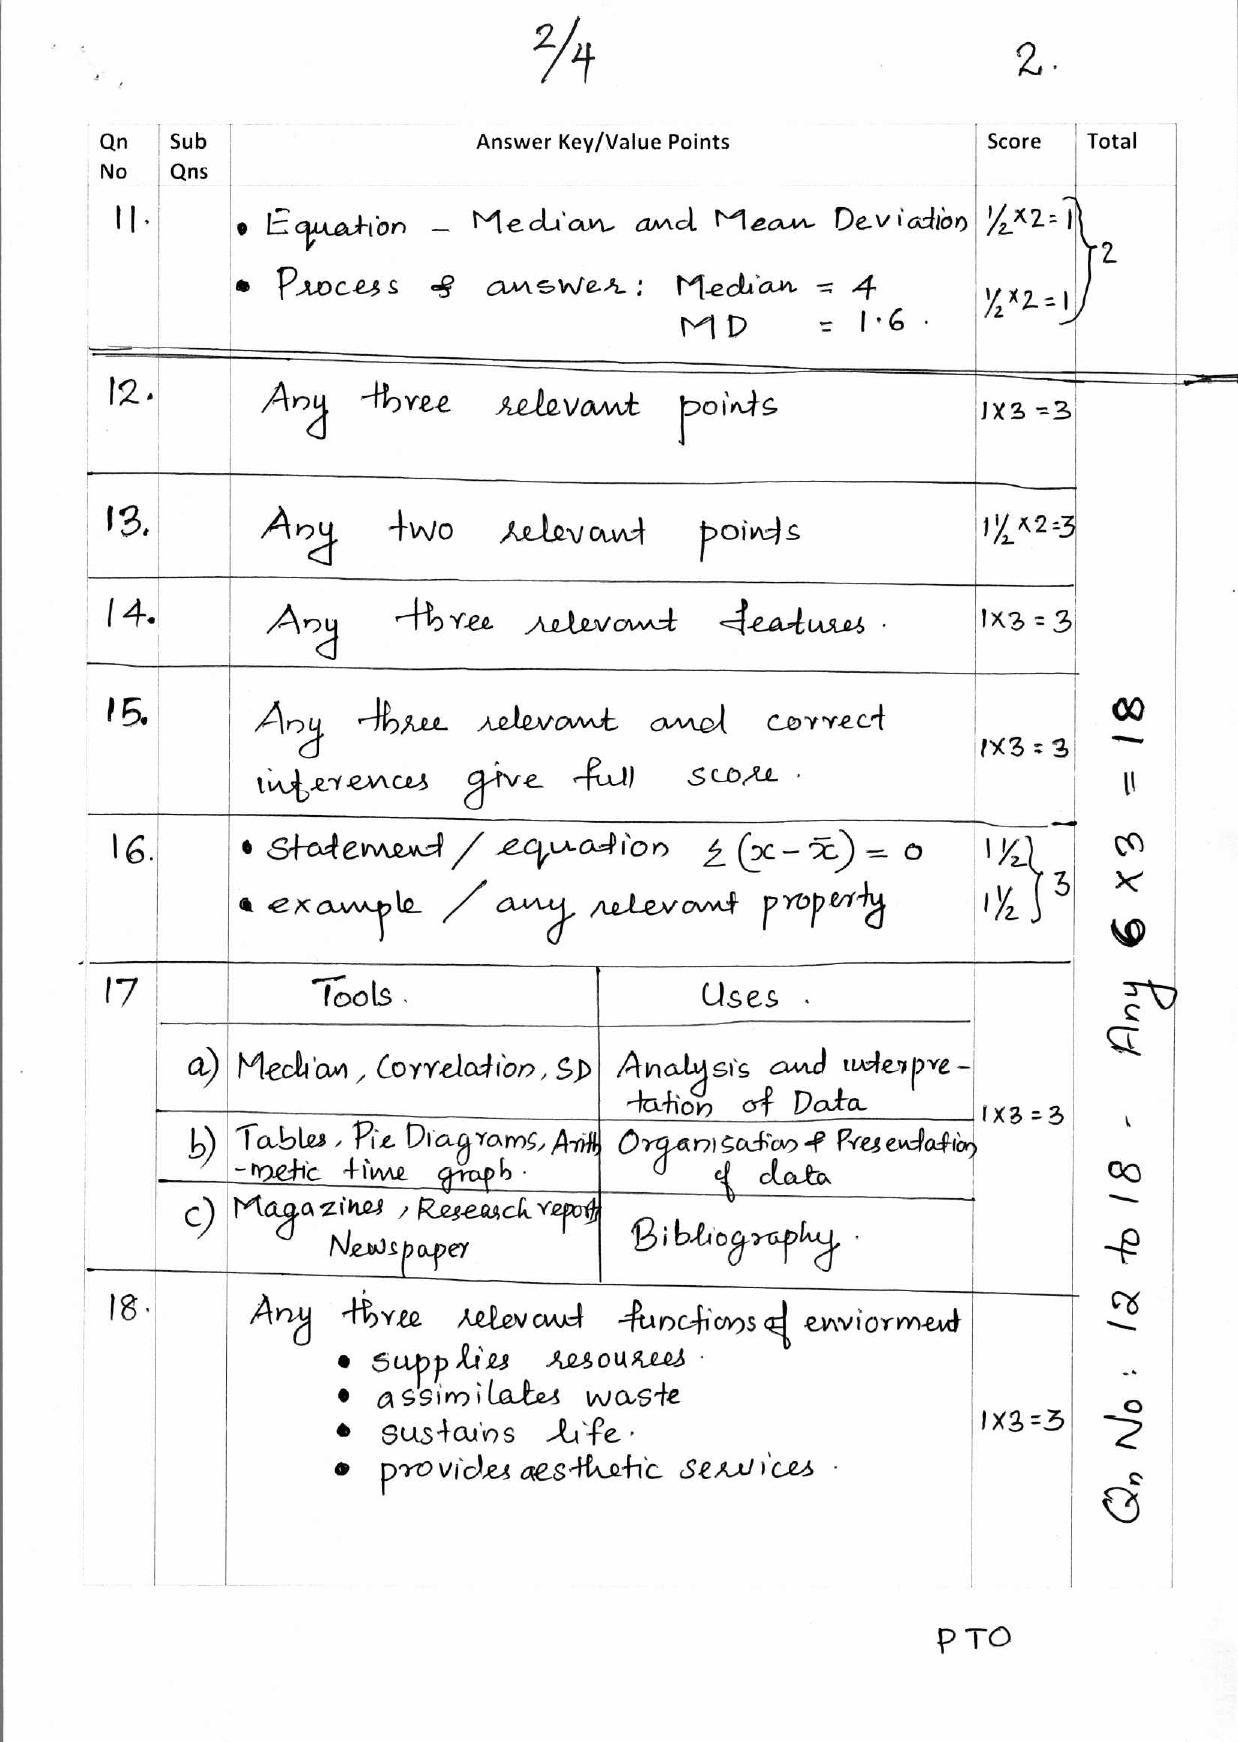 2/4
2.
Qn No Sub Qns Answer Key/Value Points Score Total
11. • Equation – Median and Mean Deviation ½×2=1
• Process & answer: Median = 4 ½×2=1 } 2
MD = 1.6 .
12. Any three relevant points 1×3=3
13. Any two relevant points 1½×2=3
14. Any three relevant features. 1×3=3
15. Any three relevant and correct
inferences give full score. 1×3=3
16. • Statement / equation Σ(x-x̄)=0 1½
• example / any relevant property 1½ } 3
17 Tools. Uses .
a) Median, Correlation, SD Analysis and interpre-
tation of Data 1×3=3
b) Tables, Pie Diagrams, Arith Organisation & Presentation
-metic time graph. of data
c) Magazines, Research report
Newspaper Bibliography.
18. Any three relevant functions of enviorment
• supplies resources.
• assimilates waste
• sustains life. 1×3=3
• provides aesthetic services.
Qn No: 12 to 18 - Any 6×3=18
PTO